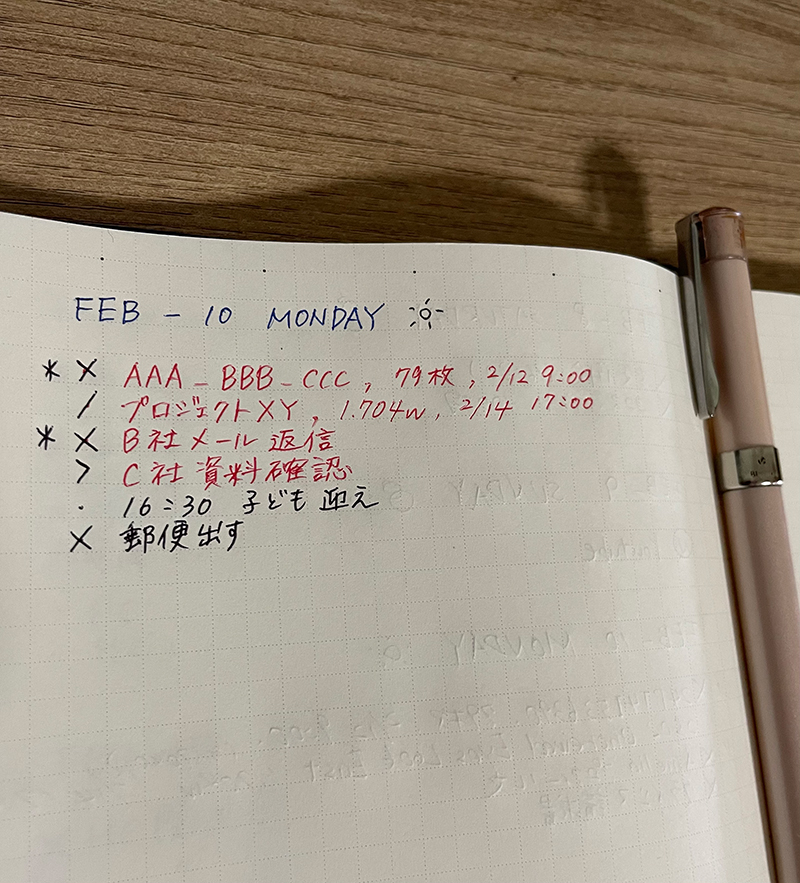 FEB - 10 MONDAY
* × AAA_BBB_CCC, 79枚, 2/12 9:00
/ プロジェクトXY, 1.704w, 2/14 17:00
* × B社メール返信
> C社資料確認
・ 16:30 子ども迎え
× 郵便出す